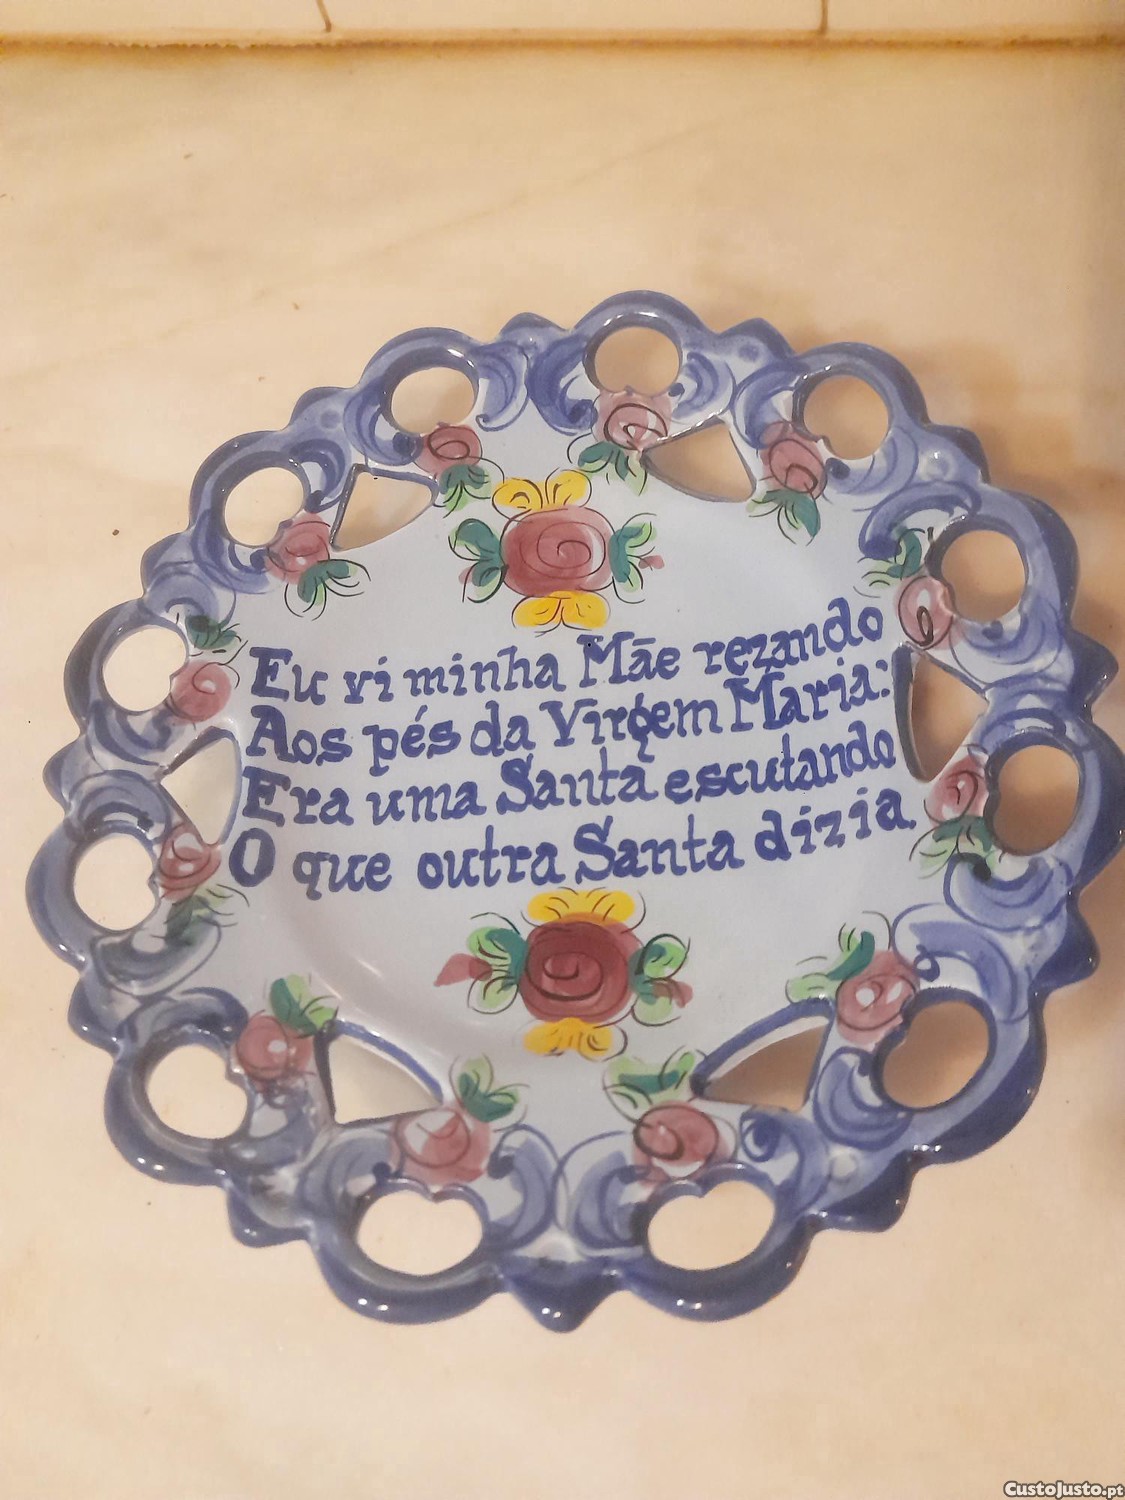 Eu vi minha Mãe rezando
Aos pés da Virgem Maria:
Era uma Santa escutando
O que outra Santa dizia.
CustoJusto.pt